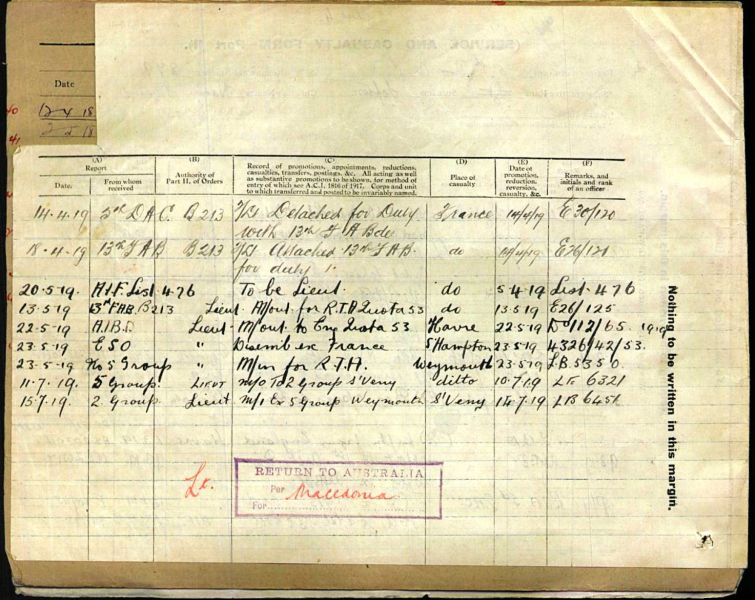 40
41
Date
12 4 18
2 5 18
(A)
Report
Date.
From whom received
(B)
Authority of Part II. of Orders
(C)
Record of promotions, appointments, reductions, casualties, transfers, postings, &c. All acting as well as substantive promotions to be shown, for method of entry of which see A.C.I. 1816 of 1917. Corps and unit to which transferred and posted to be invariably named.
(D)
Place of casualty
(E)
Date of promotion, reduction, reversion, casualty, &c.
(F)
Remarks, and initials and rank of an officer
14.4.19 3rd D A C. B 213 2/Lt Detached for Duty France 14/4/19 E30/120
with 13th F A Bde
18.4.19 13th F A B B 213 2/Lt Attached 13th F A B. do 14/4/19 E26/121
for duty
20.5.19. A.I.F. List 476 To be Lieut. do 5.4.19 List 476
13.5.19 13th FAB. B 213 Lieut. M/out for R.T.A Quota 53 do 13.5.19 E26/125
22.5.19. A.I.B.D. Lieut. M/out to Eng Quota 53 Havre 22.5.19 D 112/65. 19.19
23.5.19 ESO " Disemb ex France S'Hampton 23.5.19 4326/42/53.
23.5.19 No 5 Group " M/in for R.T.A. Weymouth 23.5.19 L.B. 5350.
11.7.19. 5 Group. Lieut m/o To 2 Group S'Veny ditto 10.7.19 LB 6321
15.7.19 2. Group. Lieut m/i Ex 5 Group Weymouth S'Veny 10.7.19 LB 6451
Nothing to be written in this margin.
Lt.
RETURN TO AUSTRALIA
Per Macedonia
For